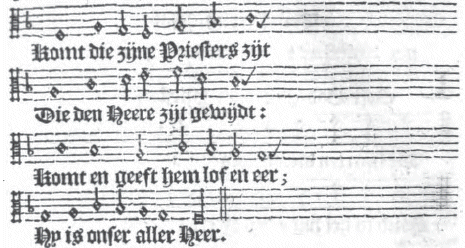 Komt die zijne Priesters zijt
Die den Heere zijt gewijdt:
Komt en geeft hem lof en eer;
Hy is onser aller Heer.